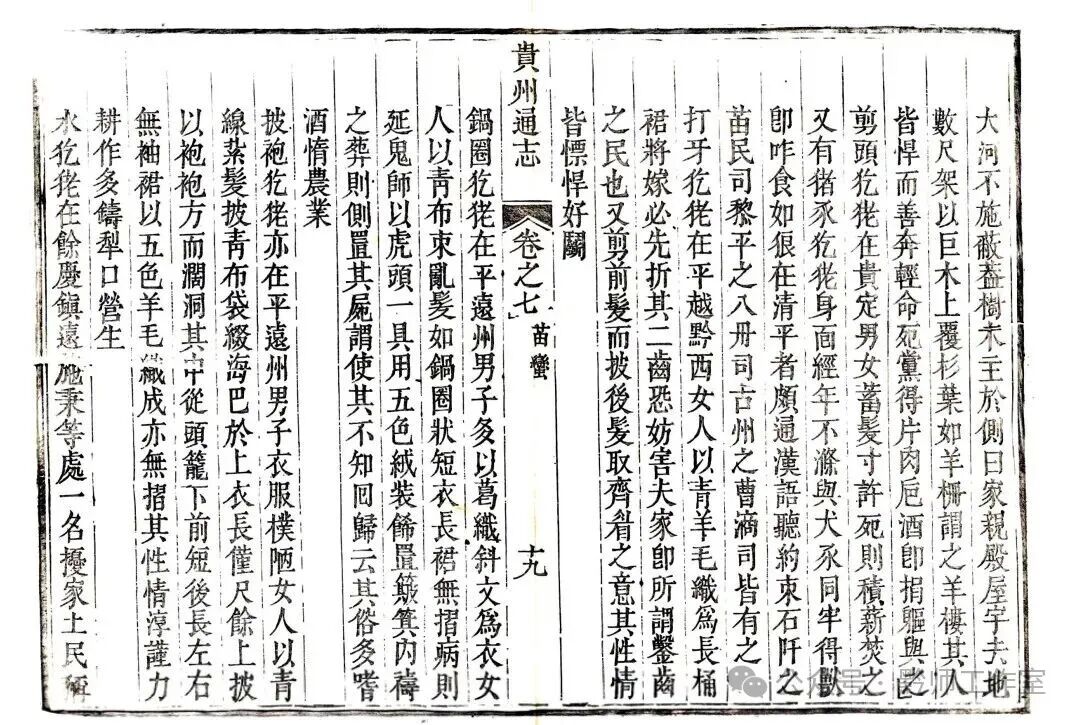 大河不施蔽葢樹木主於側曰家親殿屋宇去地
數尺架以巨木上覆杉葉如羊栅謂之羊樓其人
皆悍而善奔輕命死黨得片肉巵酒卽捐軀與之
剪頭犵狫在貴定男女蓄髮寸許死則積薪焚之
又有猪豕犵狫身面經年不滌與犬豕同牢得獸
卽咋食如狼在清平者頗通漢語聽約束石阡之
苗民司黎平之八舟司古州之曹滴司皆有之
打牙犵狫在平越黔西女人以青羊毛織爲長桶
裙將嫁必先折其二齒恐妨害夫家卽所謂鑿齒
之民也又剪前髮而披後髮取齊眉之意其性情
皆慓悍好鬭
貴州通志
卷之七
苗蠻
十九
鍋圈犵狫在平遠州男子多以葛織斜文爲衣女
人以青布束亂髮如鍋圈狀短衣長裙無摺病則
延鬼師以虎頭一具用五色絨裝飾置簸箕内禱
之葬則側置其屍謂使其不知回歸云其俗多嗜
酒惰農業
披袍犵狫亦在平遠州男子衣服樸陋女人以青
線紥髮披青布袋綴海巴於上衣長僅尺餘上披
以袍袍方而濶洞其中從頭籠下前短後長左右
無袖裙以五色羊毛織成亦無摺其性情淳謹力
耕作多鑄犁口營生
水犵狫在餘慶鎮遠施秉等處一名擾家土民稱
公众号
师工作室